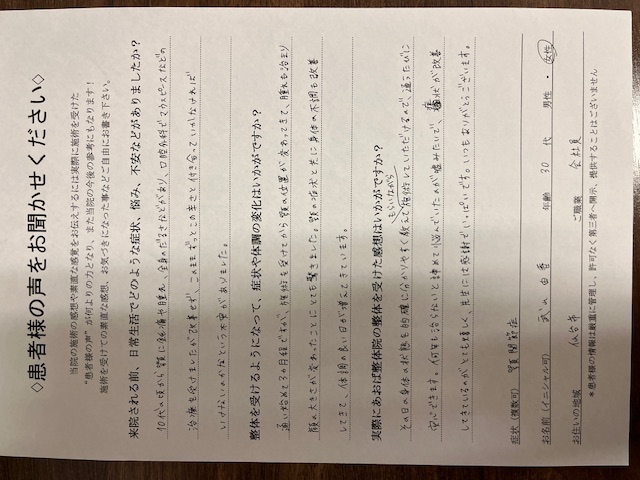 ◇患者様の声をお聞かせください◇
当院の施術の感想や素直な感覚をお伝えするには実際に施術を受けた
“患者様の声”が何よりの力となり、また当院の今後の参考にもなります!
施術を受けての素直な感想、お気づきになった事などご自由にお書き下さい。
来院される前、日常生活でどのような症状、悩み、不安などがありましたか?
10代の頃から顎に鈍痛や腫れ、全身のだるさなどがあり、口腔外科でマウスピースなどの
治療を受けましたが改善せず、このままずっとこの辛さと付き合っていかなければ
いけないのかなという不安がありました。
整体を受けるようになって、症状や体調の変化はいかがですか?
通い始めて3ヵ月程ですが、施術を受けてから顎の位置が変わってきて、腫れも治まり
顔の大きさが変わったことにとても驚きました。顎の症状と共に身体の不調も改善
してきて、体調の良い日が増えてきています。
実際にあおば整体院の整体を受けた感想はいかがですか?
その日の身体の状態を的確に分かりやすく教えてもらいながら施術していただけるので、通うたびに
安心できます。何年も治らないと諦めて悩んでいたのが嘘みたいで、症状が改善
してきているのがとても嬉しく、先生には感謝でいっぱいです。いつもありがとうございます。
症状(複数可) 顎関節症
お名前(イニシャル可) 武山 由香 年齢 30 代 男性・女性
お住いの地域 仙台市 ご職業 会社員
*患者様の情報は厳重に管理し、許可なく第三者へ開示、提供することはございません